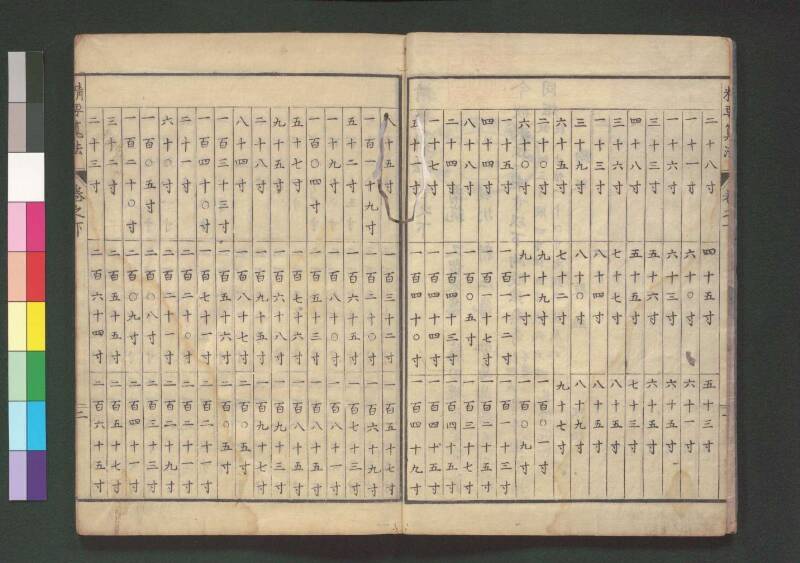 精要算法 卷之下 一
二十八寸 四十五寸 五十三寸
一十一寸 六十〇寸 六十一寸
一十六寸 六十三寸 六十五寸
三十三寸 五十六寸 六十五寸
四十八寸 五十五寸 七十三寸
三十六寸 七十七寸 八十五寸
一十三寸 八十四寸 八十五寸
三十九寸 八十〇寸 八十九寸
六十五寸 七十二寸 九十七寸
二十〇寸 九十九寸 一百〇一寸
六十〇寸 九十一寸 一百〇九寸
一十五寸 一百一十二寸 一百一十三寸
四十四寸 一百一十七寸 一百二十五寸
八十八寸 一百〇五寸 一百三十七寸
二十四寸 一百四十三寸 一百四十五寸
一十七寸 一百四十四寸 一百四十五寸
五十一寸 一百四十〇寸 一百四十九寸
八十五寸 一百三十二寸 一百五十七寸
一百一十九寸 一百二十〇寸 一百六十九寸
五十二寸 一百六十五寸 一百七十三寸
一十九寸 一百八十〇寸 一百八十一寸
一百〇四寸 一百五十三寸 一百八十五寸
五十七寸 一百七十六寸 一百八十五寸
九十五寸 一百六十八寸 一百九十三寸
二十八寸 一百九十五寸 一百九十七寸
八十四寸 一百八十七寸 二百〇五寸
一百三十三寸 一百五十六寸 二百〇五寸
一百四十〇寸 一百七十一寸 二百二十一寸
二十一寸 二百二十〇寸 二百二十一寸
六十〇寸 二百二十一寸 二百二十九寸
一百〇五寸 二百〇八寸 二百三十三寸
一百二十〇寸 二百〇九寸 二百四十一寸
三十二寸 二百五十五寸 二百五十七寸
二十三寸 二百六十四寸 二百六十五寸
精要算法 卷之下 二